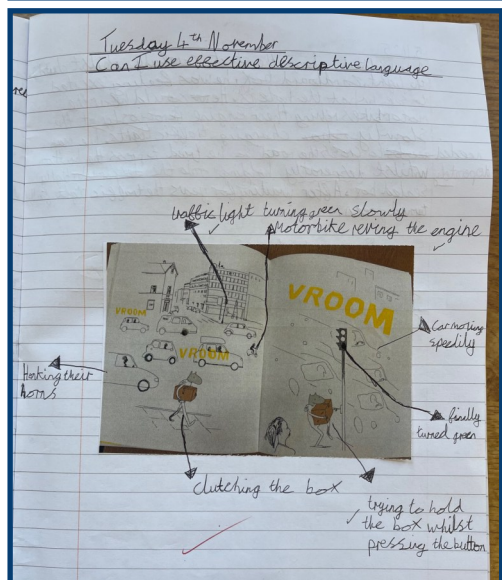 Tuesday 4th November
Can I use effective descriptive language
traffic light turning green slowly
Motorbike reving the engine
VROOM
VROOM
VROOM
Car moving speedily
Honking their
horns
finally
turned green
clutching the box
trying to hold
the box whilst
pressing the button